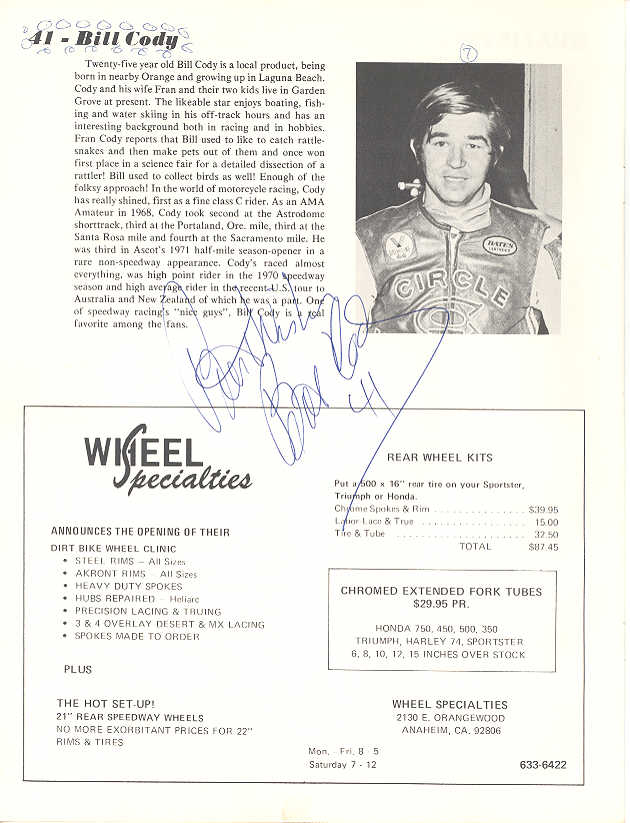 41 - Bill Cody
7
Twenty-five year old Bill Cody is a local product, being
born in nearby Orange and growing up in Laguna Beach.
Cody and his wife Fran and their two kids live in Garden
Grove at present. The likeable star enjoys boating, fish-
ing and water skiing in his off-track hours and has an
interesting background both in racing and in hobbies.
Fran Cody reports that Bill used to like to catch rattle-
snakes and then make pets out of them and once won
first place in a science fair for a detailed dissection of a
rattler! Bill used to collect birds as well! Enough of the
folksy approach! In the world of motorcycle racing, Cody
has really shined, first as a fine class C rider. As an AMA
Amateur in 1968, Cody took second at the Astrodome
shorttrack, third at the Portaland, Ore. mile, third at the
Santa Rosa mile and fourth at the Sacramento mile. He
was third in Ascot's 1971 half-mile season-opener in a
rare non-speedway appearance. Cody's raced almost
everything, was high point rider in the 1970 speedway
season and high average rider in the recent U.S. tour to
Australia and New Zealand of which he was a part. One
of speedway racing's "nice guys", Bill Cody is a real
favorite among the fans.
BATES
CIRCLE
Best Wishes
Bill Cody
41
WHEEL
Specialties
ANNOUNCES THE OPENING OF THEIR
DIRT BIKE WHEEL CLINIC
• STEEL RIMS — All Sizes
• AKRONT RIMS — All Sizes
• HEAVY DUTY SPOKES
• HUBS REPAIRED — Heliarc
• PRECISION LACING & TRUING
• 3 & 4 OVERLAY DESERT & MX LACING
• SPOKES MADE TO ORDER
PLUS
THE HOT SET-UP!
21" REAR SPEEDWAY WHEELS
NO MORE EXORBITANT PRICES FOR 22"
RIMS & TIRES
REAR WHEEL KITS
Put a 500 x 16" rear tire on your Sportster,
Triumph or Honda.
Chrome Spokes & Rim . . . . . . . . . . . . . . $39.95
Labor Lace & True . . . . . . . . . . . . . . . . 15.00
Tire & Tube . . . . . . . . . . . . . . . . . . . . 32.50
TOTAL $87.45
CHROMED EXTENDED FORK TUBES
$29.95 PR.
HONDA 750, 450, 500, 350
TRIUMPH, HARLEY 74, SPORTSTER
6, 8, 10, 12, 15 INCHES OVER STOCK
WHEEL SPECIALTIES
2130 E. ORANGEWOOD
ANAHEIM, CA. 92806
Mon. - Fri. 8 - 5
Saturday 7 - 12
633-6422